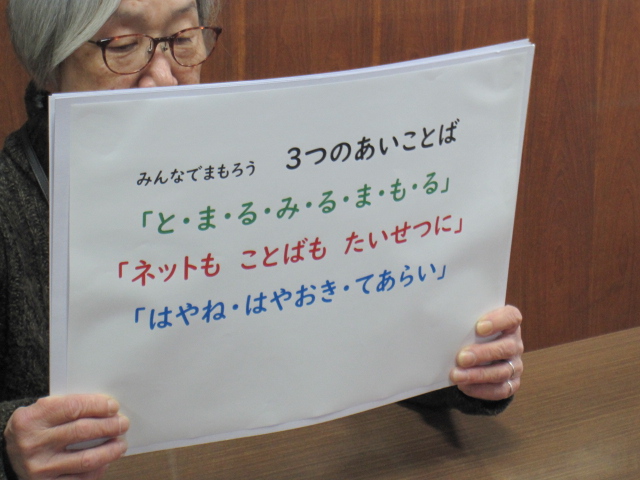 みんなでまもろう 3つのあいことば
「と・ま・る・み・る・ま・も・る」
「ネットも ことばも たいせつに」
「はやね・はやおき・てあらい」